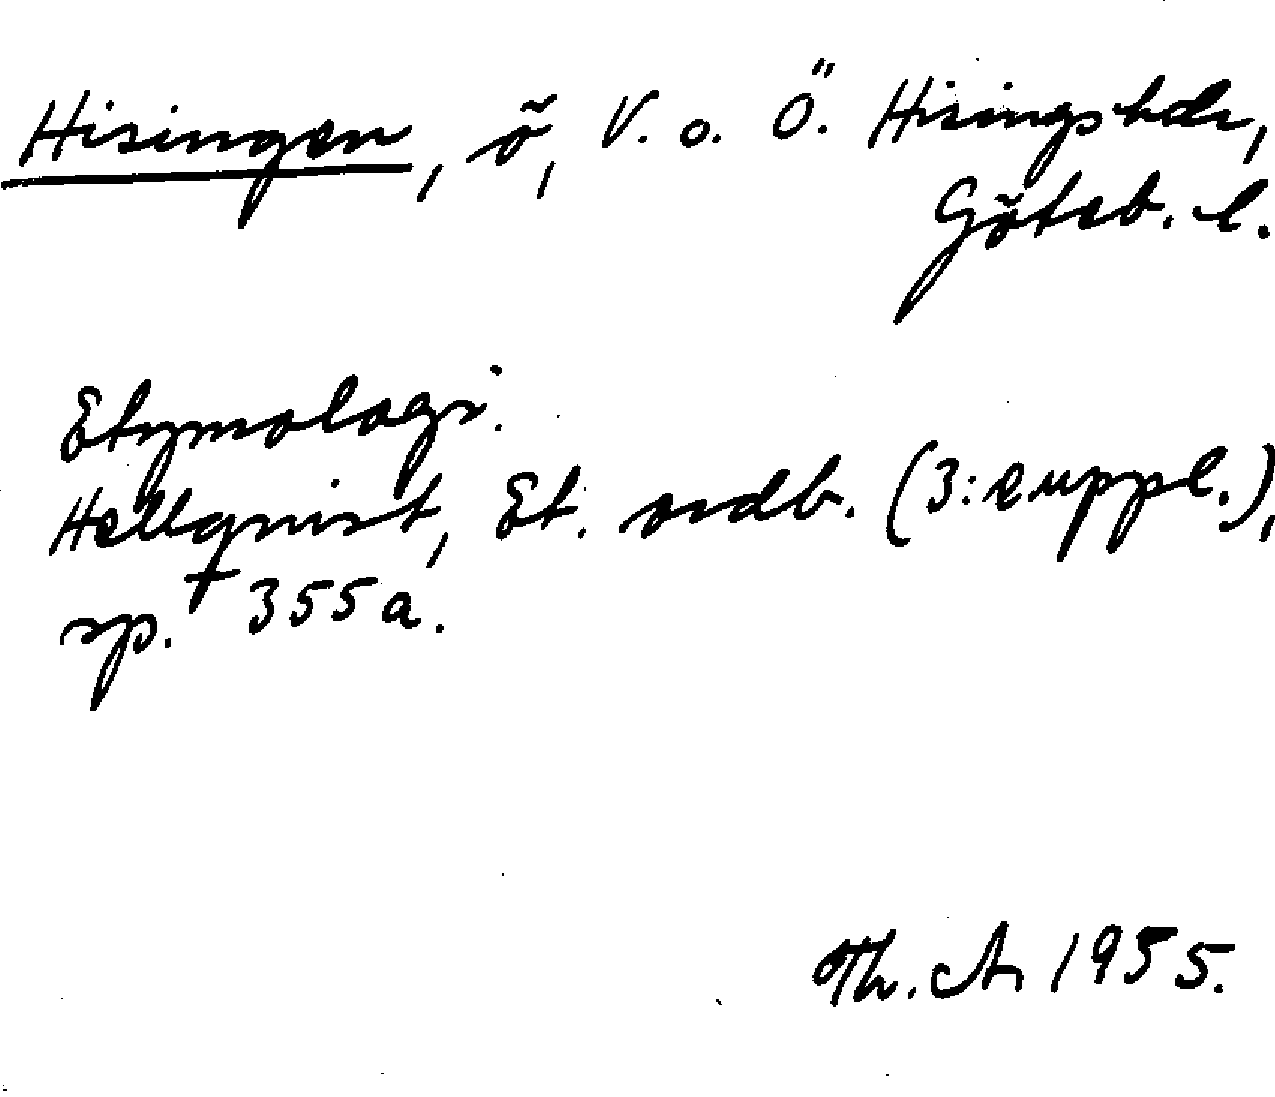 Hisingen, ö, V. o. Ö. Hisings hdr,
Göteb. l.
Etymologi.
Hellquist, Et. ordb. (3:e uppl.),
sp. 355 a.
Th. A 1955.